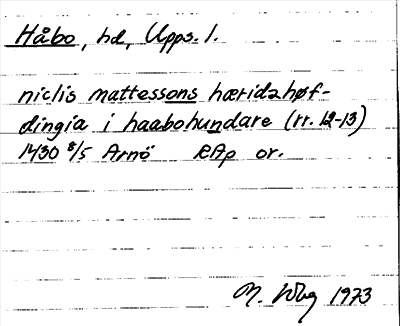 Håbo, hd, Upps. l.
niclis mattessons hæridzhøf-
dingia i haabohundare (rr. 12-13)
1430 8/5 Arnö RAp or.
1973